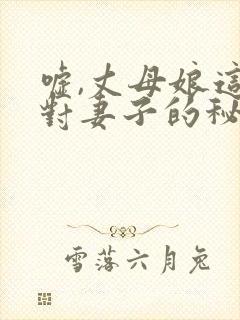 噓,丈母娘這
對妻子的秘
雪落六月兔